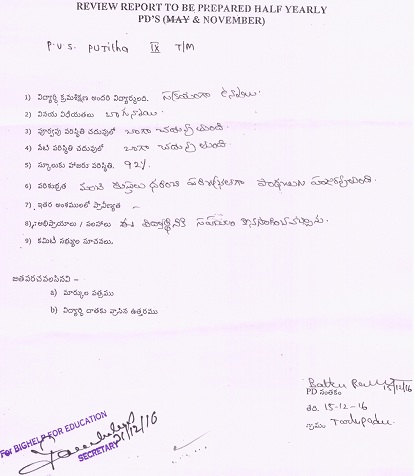 REVIEW REPORT TO BE PREPARED HALF YEARLY
PD'S (MAY & NOVEMBER)
P.V.S. PUTilha IX T/M
1) విద్యార్థి క్రమశిక్షణ అందరి విద్యార్థులందు.
2) వినయ విధేయతలు బాగున్నాయి.
3) పూర్వపు పరిస్థితి చదువులో బాగా చదువుచుంది.
4) నేటి పరిస్థితి చదువులో బాగా చదువుచుంది.
5) స్కూలుకు హాజరు పరిస్థితి. 92%
6) పరిశుభ్రత మంచి దుస్తులు ధరించి
7) ఇతర అంశములలో ప్రావీణ్యత –
8) అభిప్రాయాలు / సలహాలు ఈ విద్యార్థినికి సహాయం
9) కమిటీ సభ్యుల సూచనలు.
జతపరచవలసినవి –
a) మార్కుల పత్రము
b) విద్యార్థి దాతకు వ్రాసిన ఉత్తరము
15/12/16
PD సంతకం
తేది. 15-12-16
గ్రామం Tadepadu
For BIGHELP FOR EDUCATION
21/12/16
SECRETARY